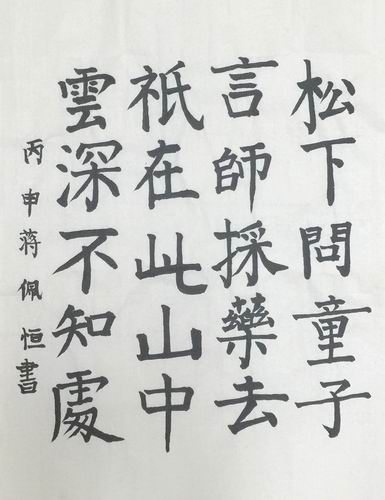 松下問童子
言師採藥去
祇在此山中
雲深不知處
丙申蔣佩恒書